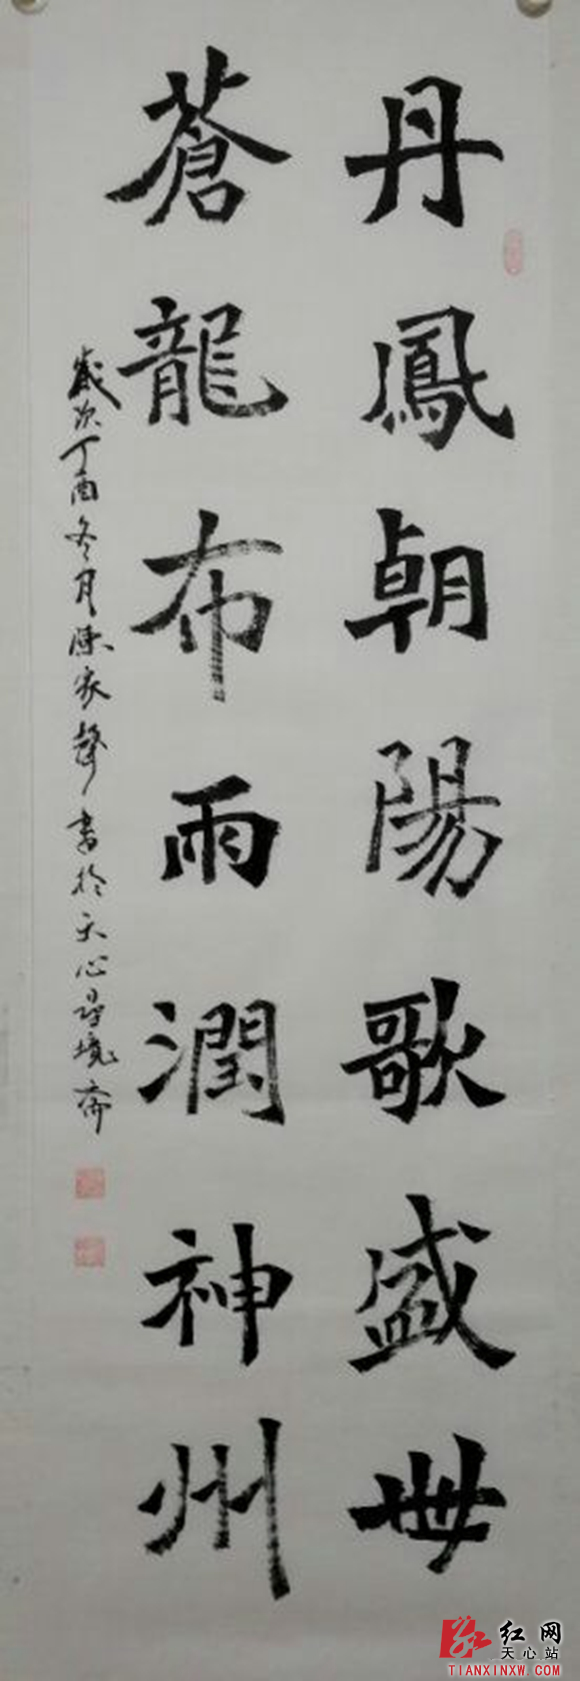 丹鳳朝陽歌盛世
蒼龍布雨潤神州
歲次丁酉冬月陳家聲書於天心尋境齋
红网
天心站
TIANXINXW.COM